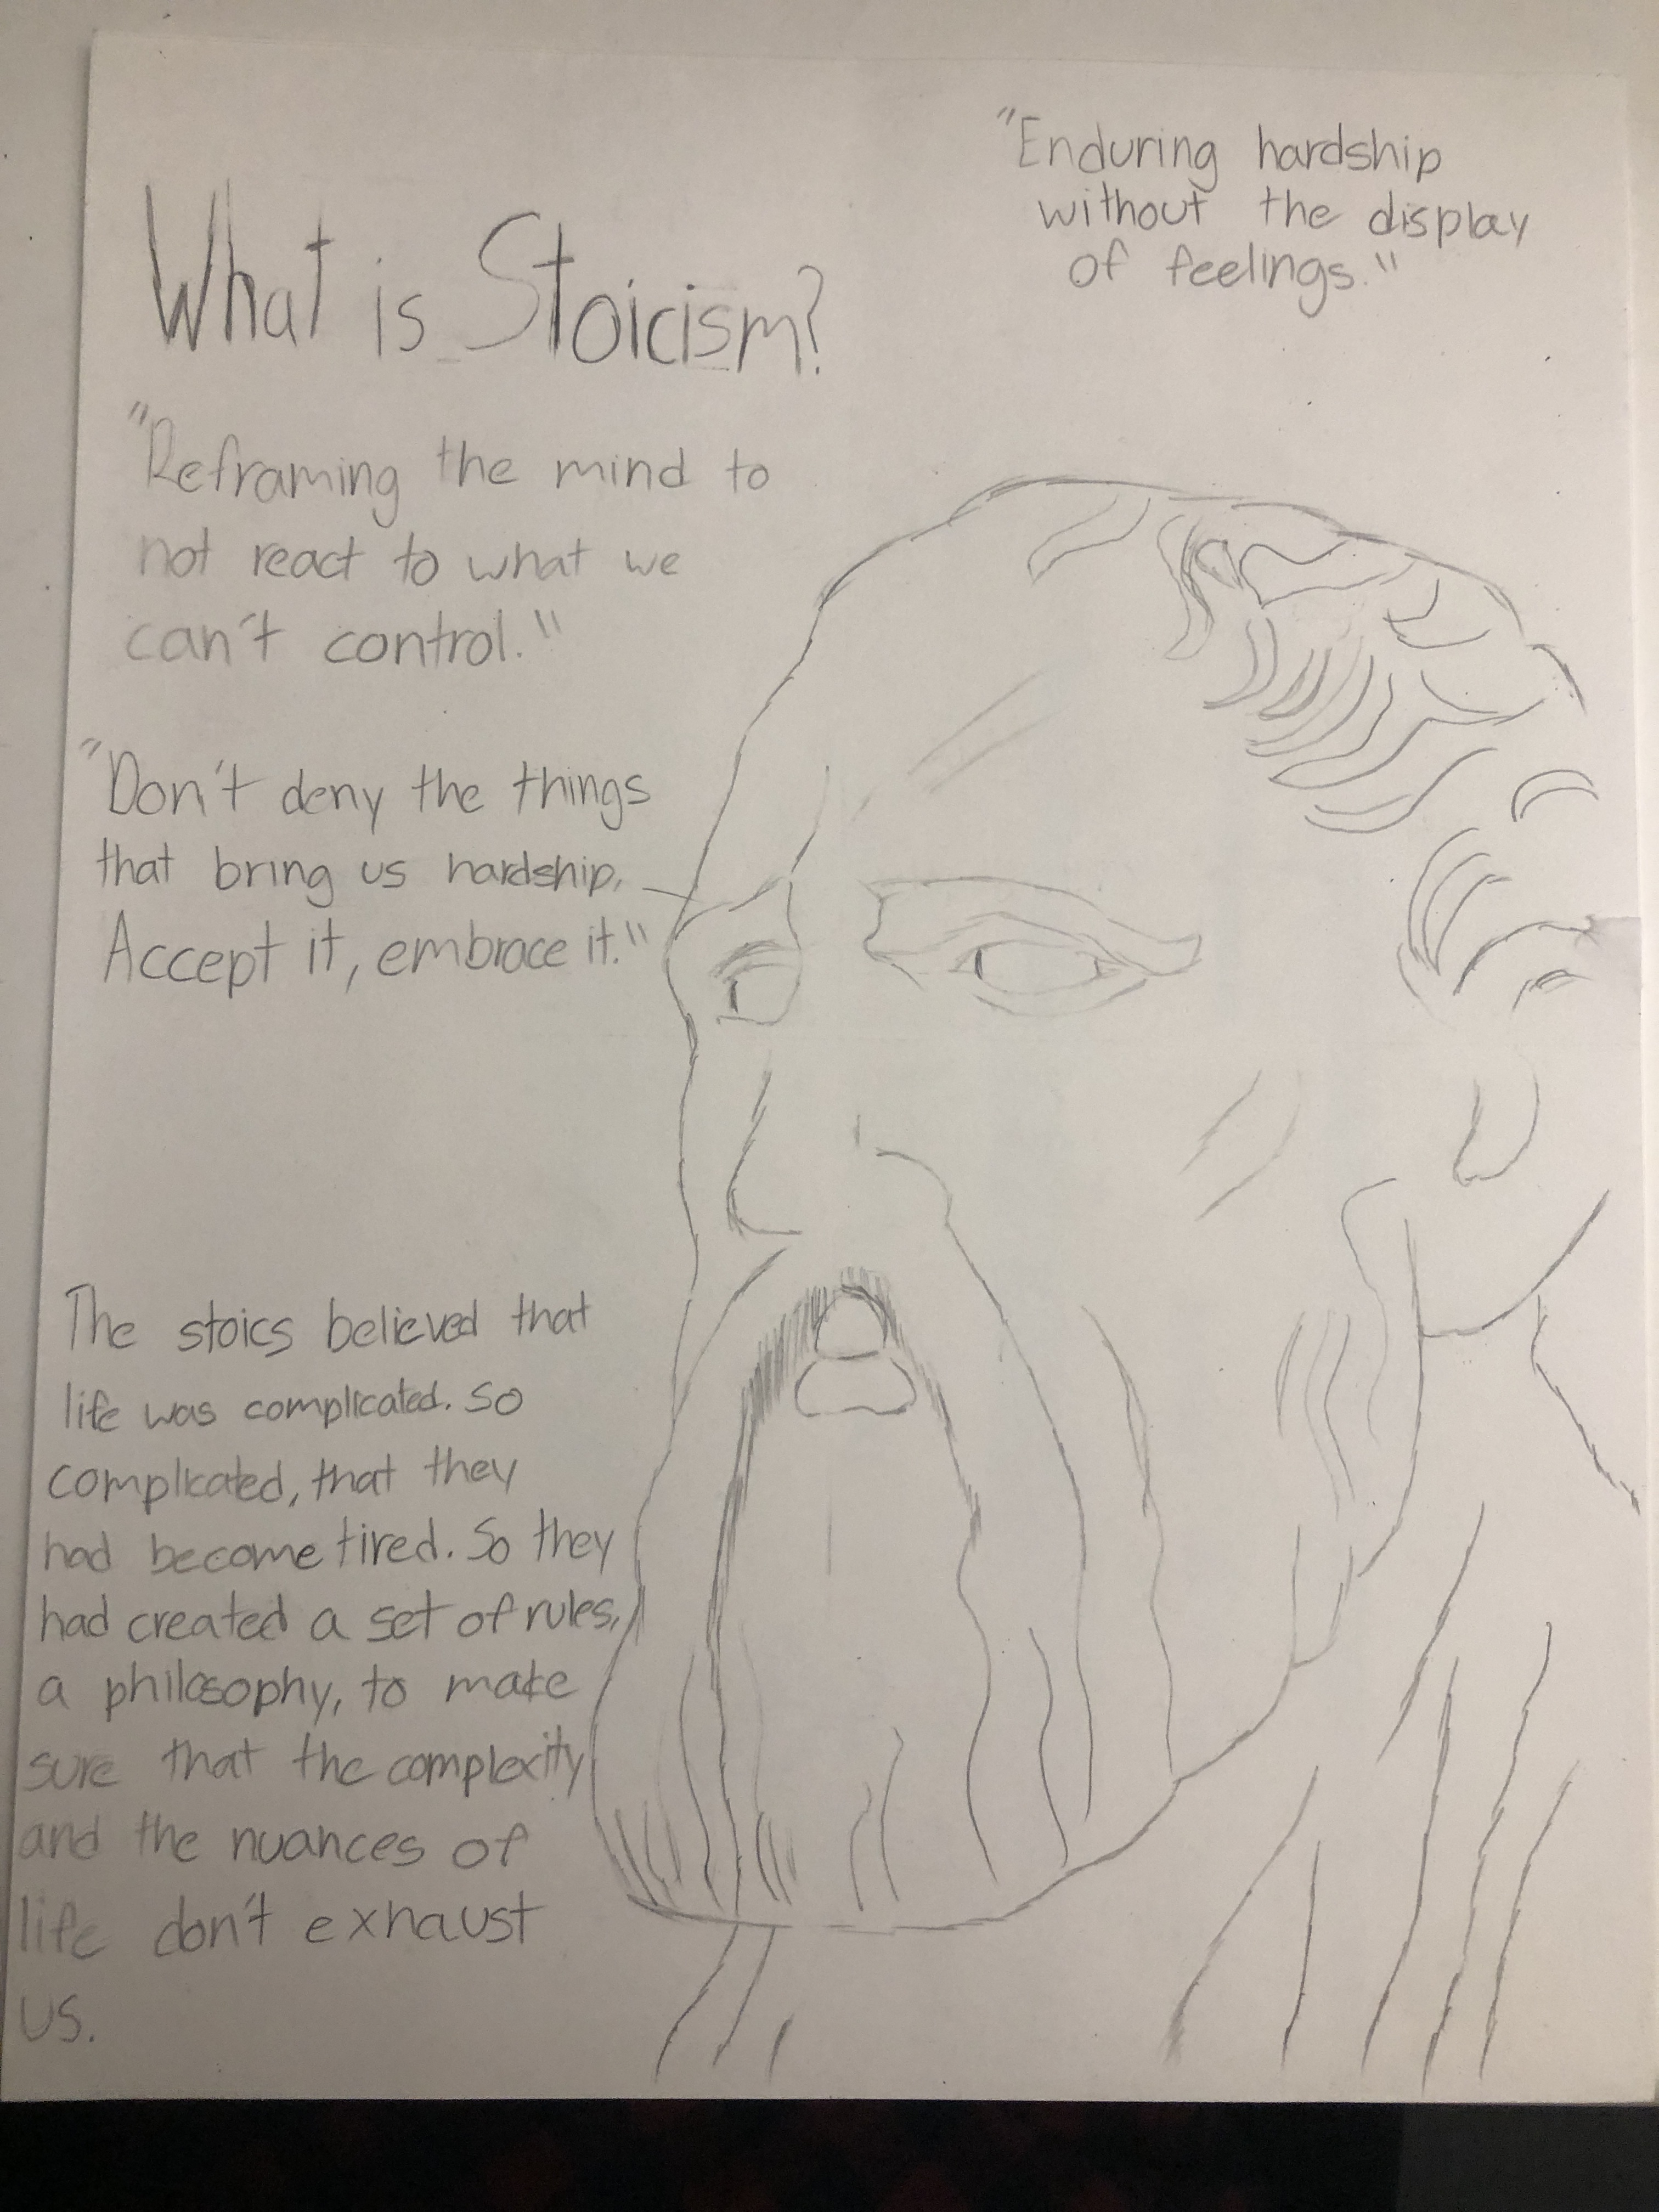 "Enduring hardship
without the display
of feelings."
What is Stoicism?
"Reframing the mind to
not react to what we
can't control."
"Don't deny the things
that bring us hardship.
Accept it, embrace it."
The stoics believed that
life was complicated. So
complicated, that they
had become tired. So they
had created a set of rules,
a philosophy, to make
sure that the complexity
and the nuances of
life don't exhaust
us.